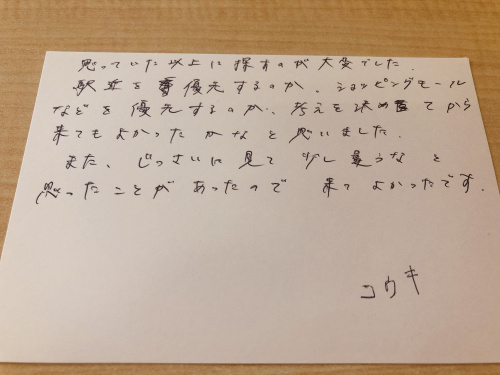 思っていた以上に探すのが大変でした.
駅近を優先するのか、ショッピングモール
などを優先するのか、考えを決めてから
来てもよかったかなと思いました.
また、じっさいに見て少し違うなと
思ったことがあったので 来てよかったです.
コウキ